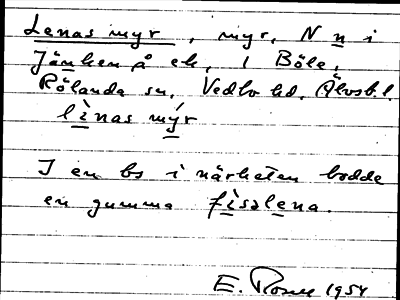 Lenas myr, myr, N n i
Jänken å ek, i Böle,
Rölanda sn, Vedbo hd, Älvsb. l.
lìnas mýr
I en bs i närheten bodde
en gumma fìsəlena.
E. Rosell 1954